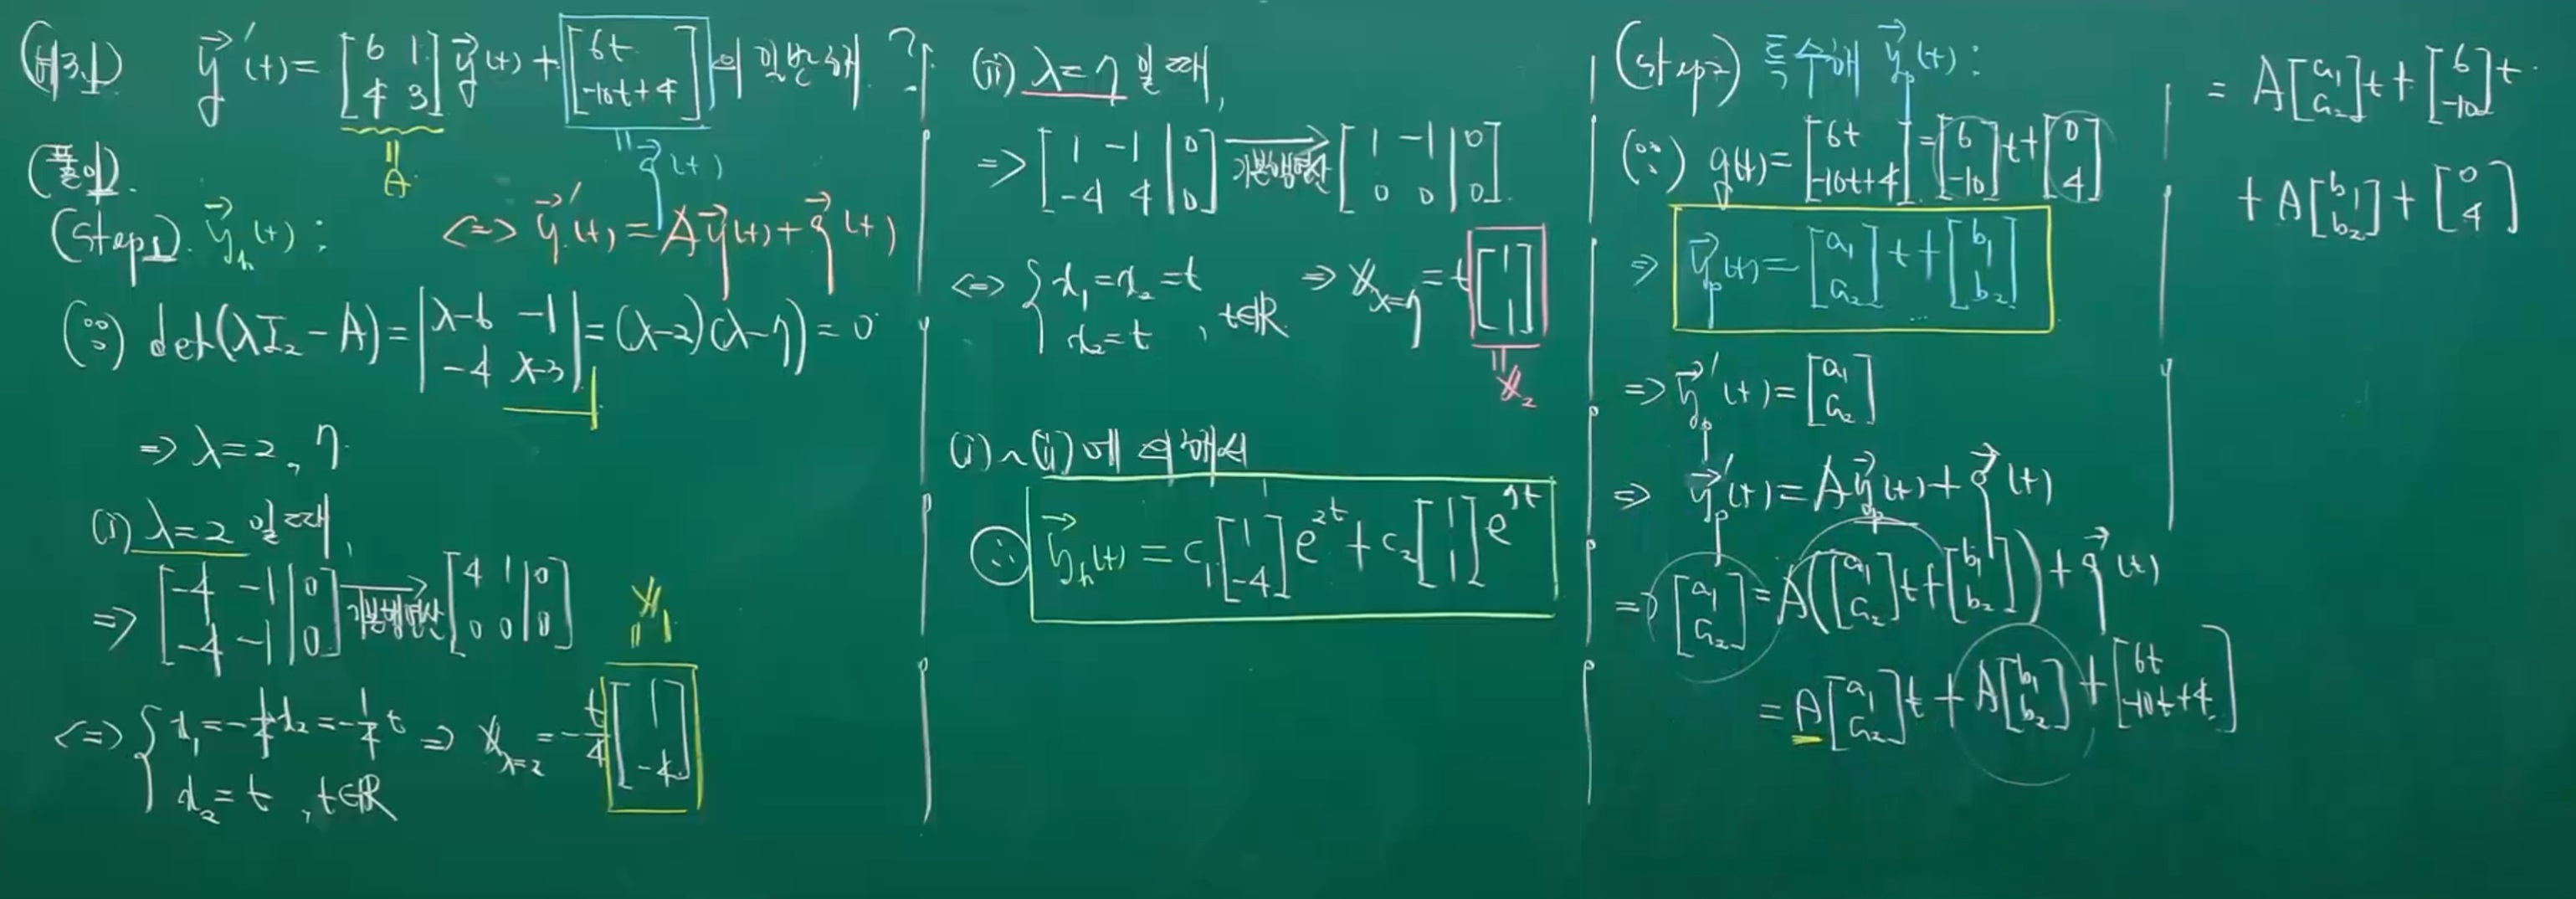 (예3.1) y⃗'(t) = [6 1; 4 3] y⃗(t) + [6t; -10t+4] 의 일반해 ?
= A
= g⃗(t)
(풀이).
(step1). y⃗_h(t) : <=> y⃗'(t) = A y⃗(t) + g⃗(t)
(∵) det(λI₂ - A) = |λ-6 -1; -4 λ-3| = (λ-2)(λ-7) = 0
=> λ = 2, 7.
(i) λ=2 일 때,
=> [-4 -1 | 0; -4 -1 | 0] → 기본행연산 [4 1 | 0; 0 0 | 0]
<=> { x₁ = -1/4 x₂ = -1/4 t
x₂ = t , t∈ℝ
=> 𝕏_{λ=2} = -t/4 [1; -4] = 𝕏₁
(ii) λ=7 일 때,
=> [1 -1 | 0; -4 4 | 0] → 기본행연산 [1 -1 | 0; 0 0 | 0].
<=> { x₁ = x₂ = t
x₂ = t , t∈ℝ.
=> 𝕏_{λ=7} = t [1; 1] = 𝕏₂
(i)~(ii)에 의해서
∴ y⃗_h(t) = c₁ [1; -4] e^{2t} + c₂ [1; 1] e^{7t}
(step2) 특수해 y⃗_p(t) :
(∵) g(t) = [6t; -10t+4] = [6; -10] t + [0; 4]
=> y⃗_p(t) = [a₁; a₂] t + [b₁; b₂]
=> y⃗_p'(t) = [a₁; a₂]
=> y⃗_p'(t) = A y⃗_p(t) + g⃗(t)
=> [a₁; a₂] = A([a₁; a₂] t + [b₁; b₂]) + g⃗(t)
= A [a₁; a₂] t + A [b₁; b₂] + [6t; -10t+4]
= A [a₁; a₂] t + [6; -10] t
+ A [b₁; b₂] + [0; 4]